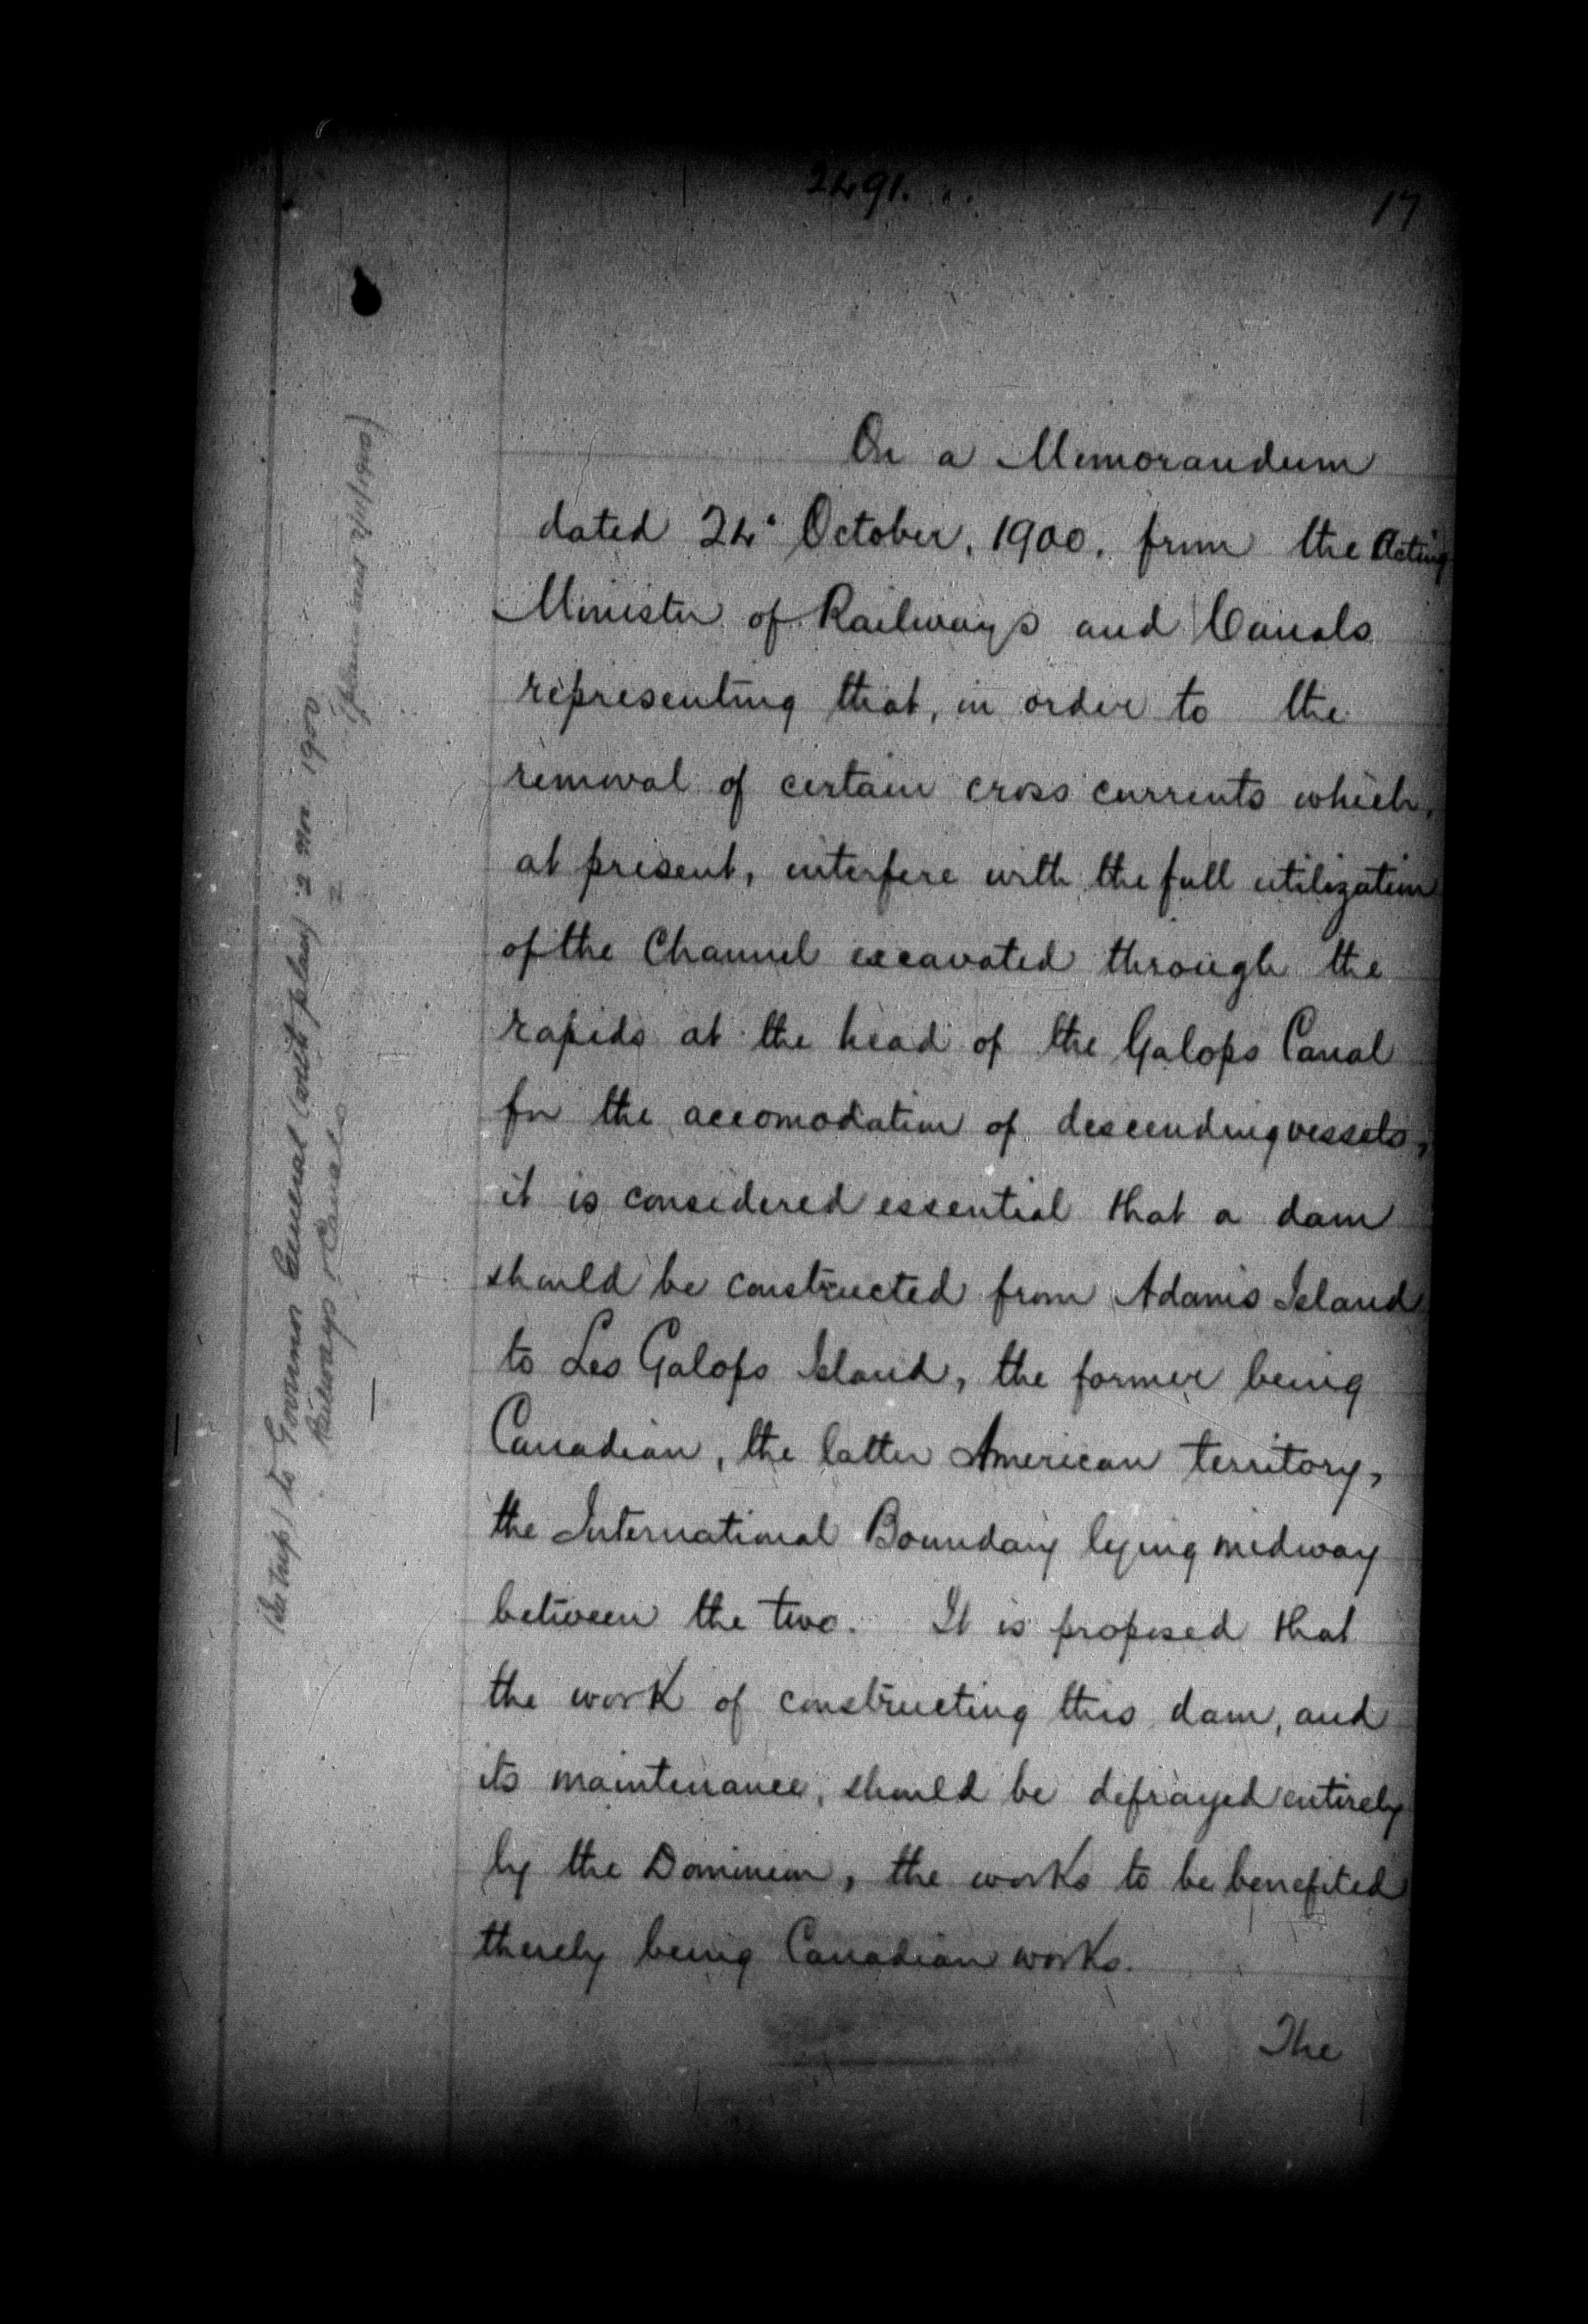 2491.
17
On a Memorandum
dated 24' October, 1900. from the Acting
Minister of Railways and Canals
representing that, in order to the
removal of certain cross currents which,
at present, interfere with the full utilization
of the Channel excavated through the
rapids at the head of the Galops Canal
for the accomodation of descending vessels,
it is considered essential that a dam
should be constructed from Adams Island
to Les Galops Island, the former being
Canadian, the latter American territory,
the International Boundary lying midway
between the two. It is proposed that
the work of constructing this dam, and
its maintenance, should be defrayed entirely
by the Dominion, the works to be benefited
thereby being Canadian works.
The
to Governor General (with plan) 2 Nov 1900
Railways & Canals 2
(plan sent 7/11/1900)